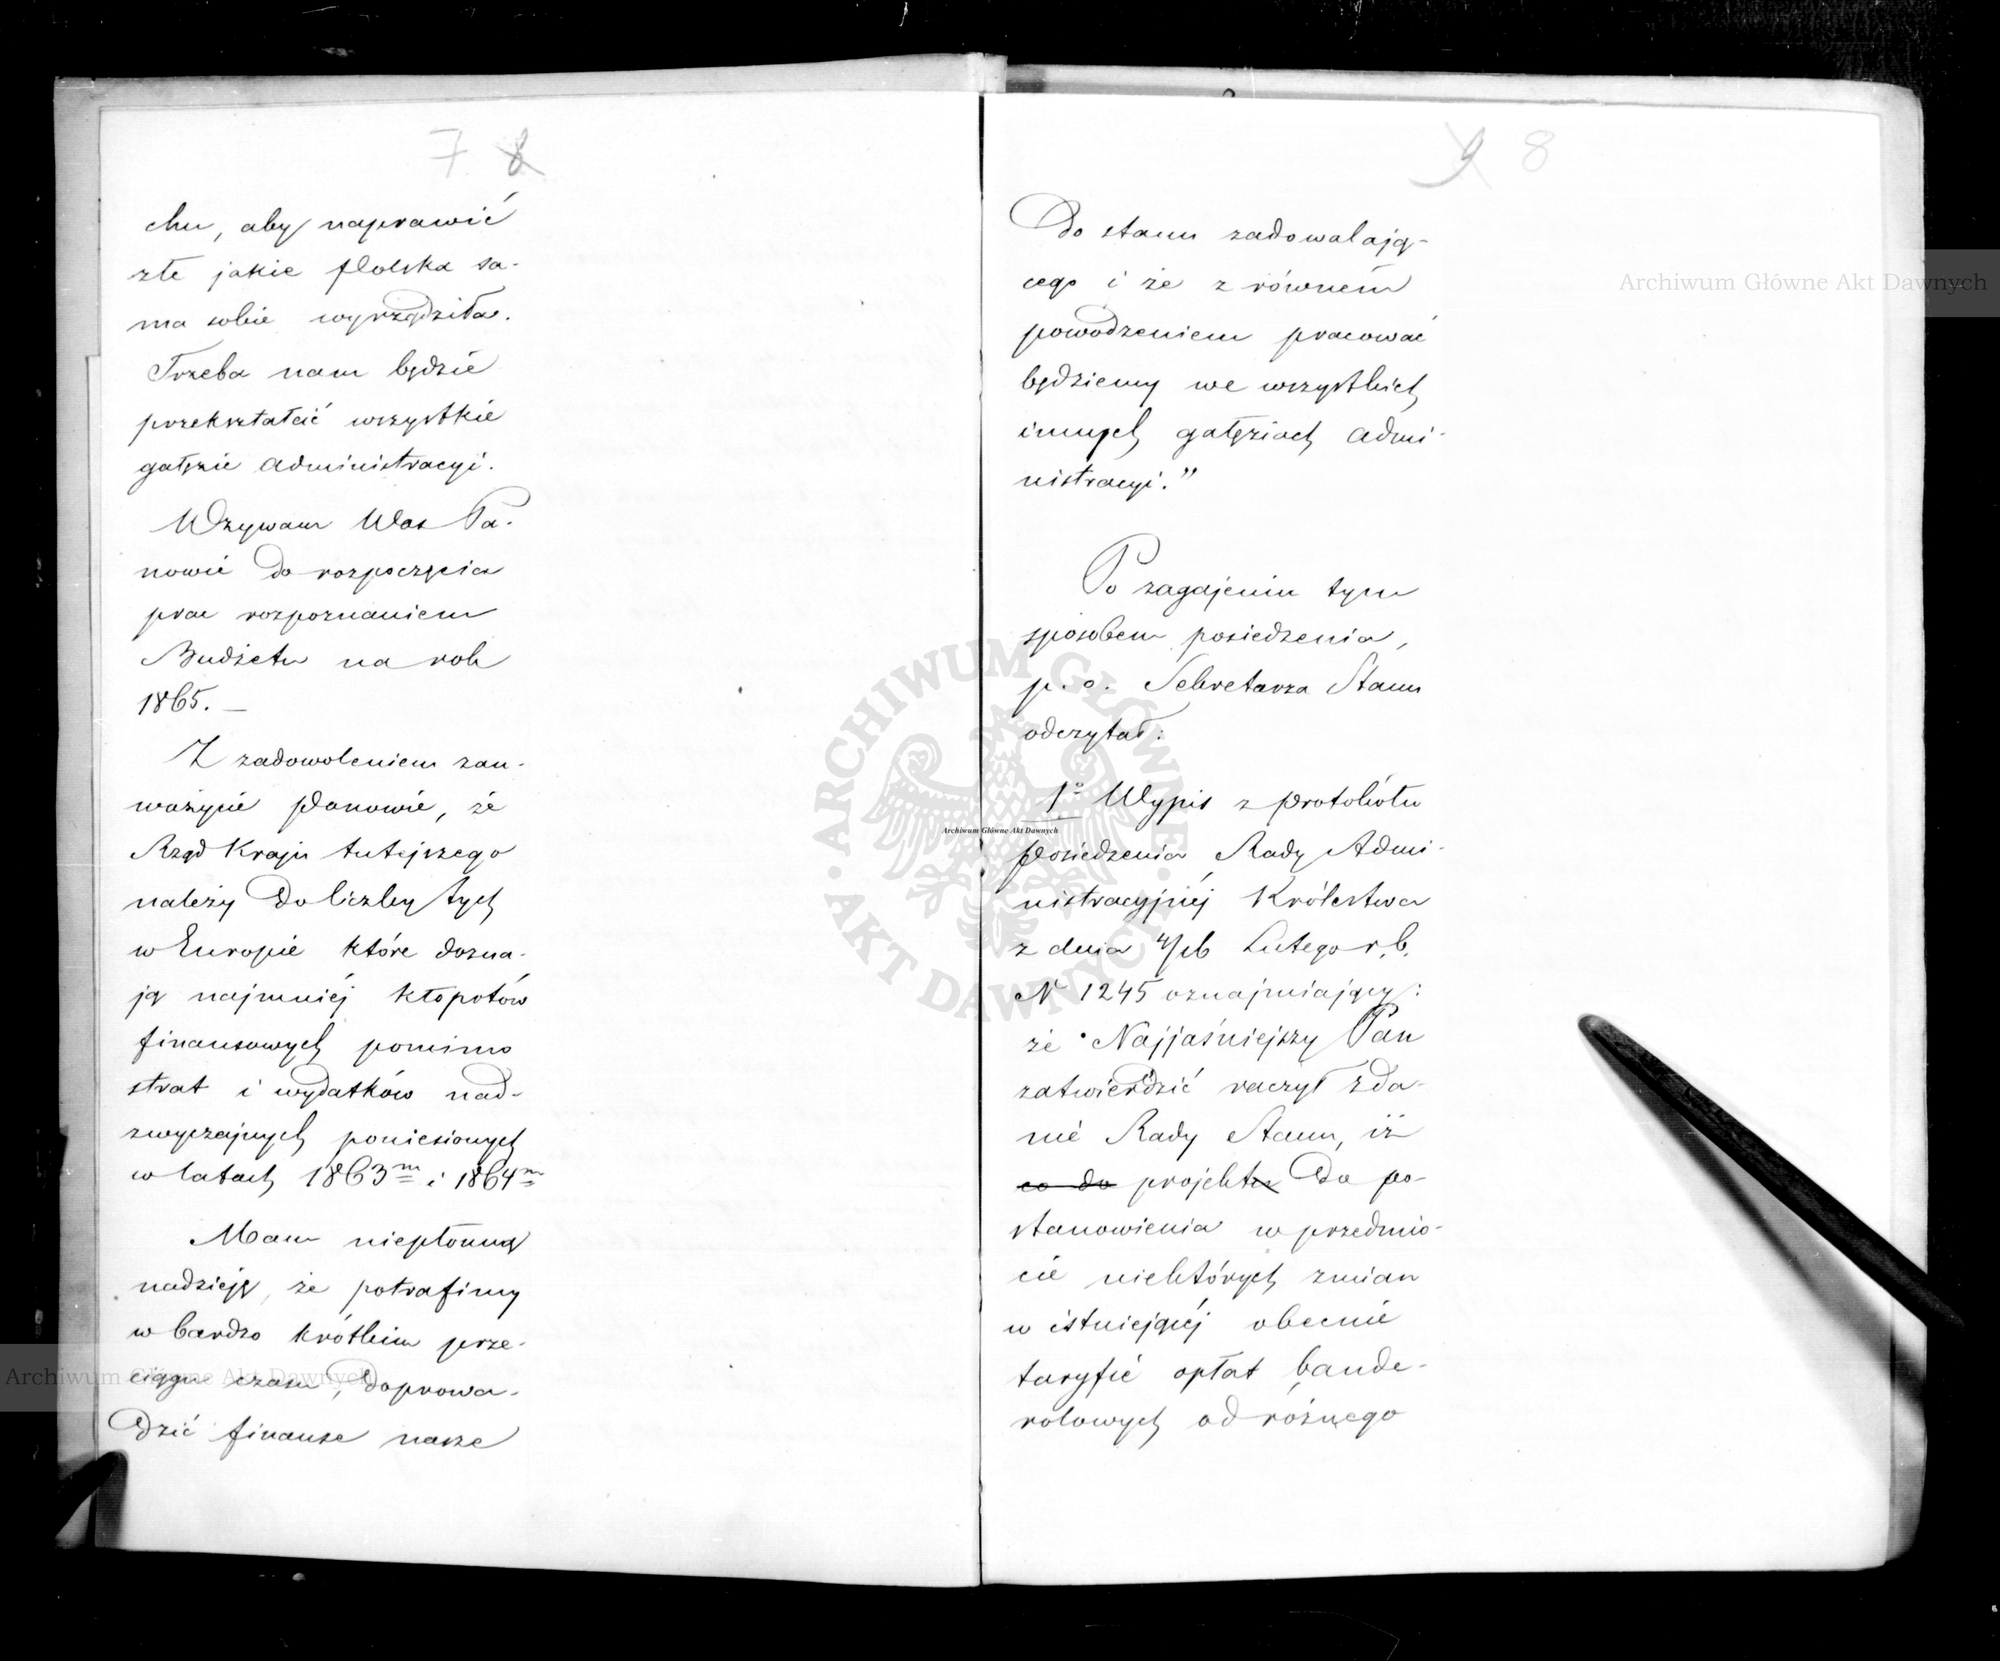 7 8
chu, aby naprawić
złe jakie Polska sa-
ma sobie wyrządziła.
Trzeba nam będzie
przekształcić wszystkie
gałęzie administracyi.
Wzywam Was Pa-
nowie do rozpoczęcia
prac rozpoznaniem
Budżetu na rok
1865. —
Z zadowoleniem zau-
ważycie Panowie, że
Rząd Kraju tutejszego
należy do liczby tych
w Europie które dozna-
ją najmniéj kłopotów
finansowych pomimo
strat i wydatków nad-
zwyczajnych poniesionych
w latach 1863m i 1864m
Mam niepłonną
nadzieję, że potrafimy
w bardzo krótkim prze-
ciągu czasu, doprowa-
dzić finanse nasze
9 8
do stanu zadowalają-
cego i że z równém
powodzeniem pracować
będziemy we wszystkich
innych gałęziach admi-
nistracyi."
Po zagajeniu tym
sposobem posiedzenia,
p. o. Sekretarza Stanu
odczytał:
1o Wypis z protokółu
Posiedzenia Rady Admi-
nistracyjnéj Królestwa
z dnia 4/16 Lutego r. b.
N 1245 oznajmiający:
że Najjaśniejszy Pan
zatwierdzić raczył zda-
nie Rady Stanu, iż
co do projektu do po-
stanowienia w przedmio-
cie niektórych zmian
w istniejącéj obecnie
taryfie opłat bande-
rolowych od różnego
Archiwum Główne Akt Dawnych
Archiwum Główne Akt Dawnych
Archiwum Główne Akt Dawnych
ARCHIWUM GŁÓWNE AKT DAWNYCH